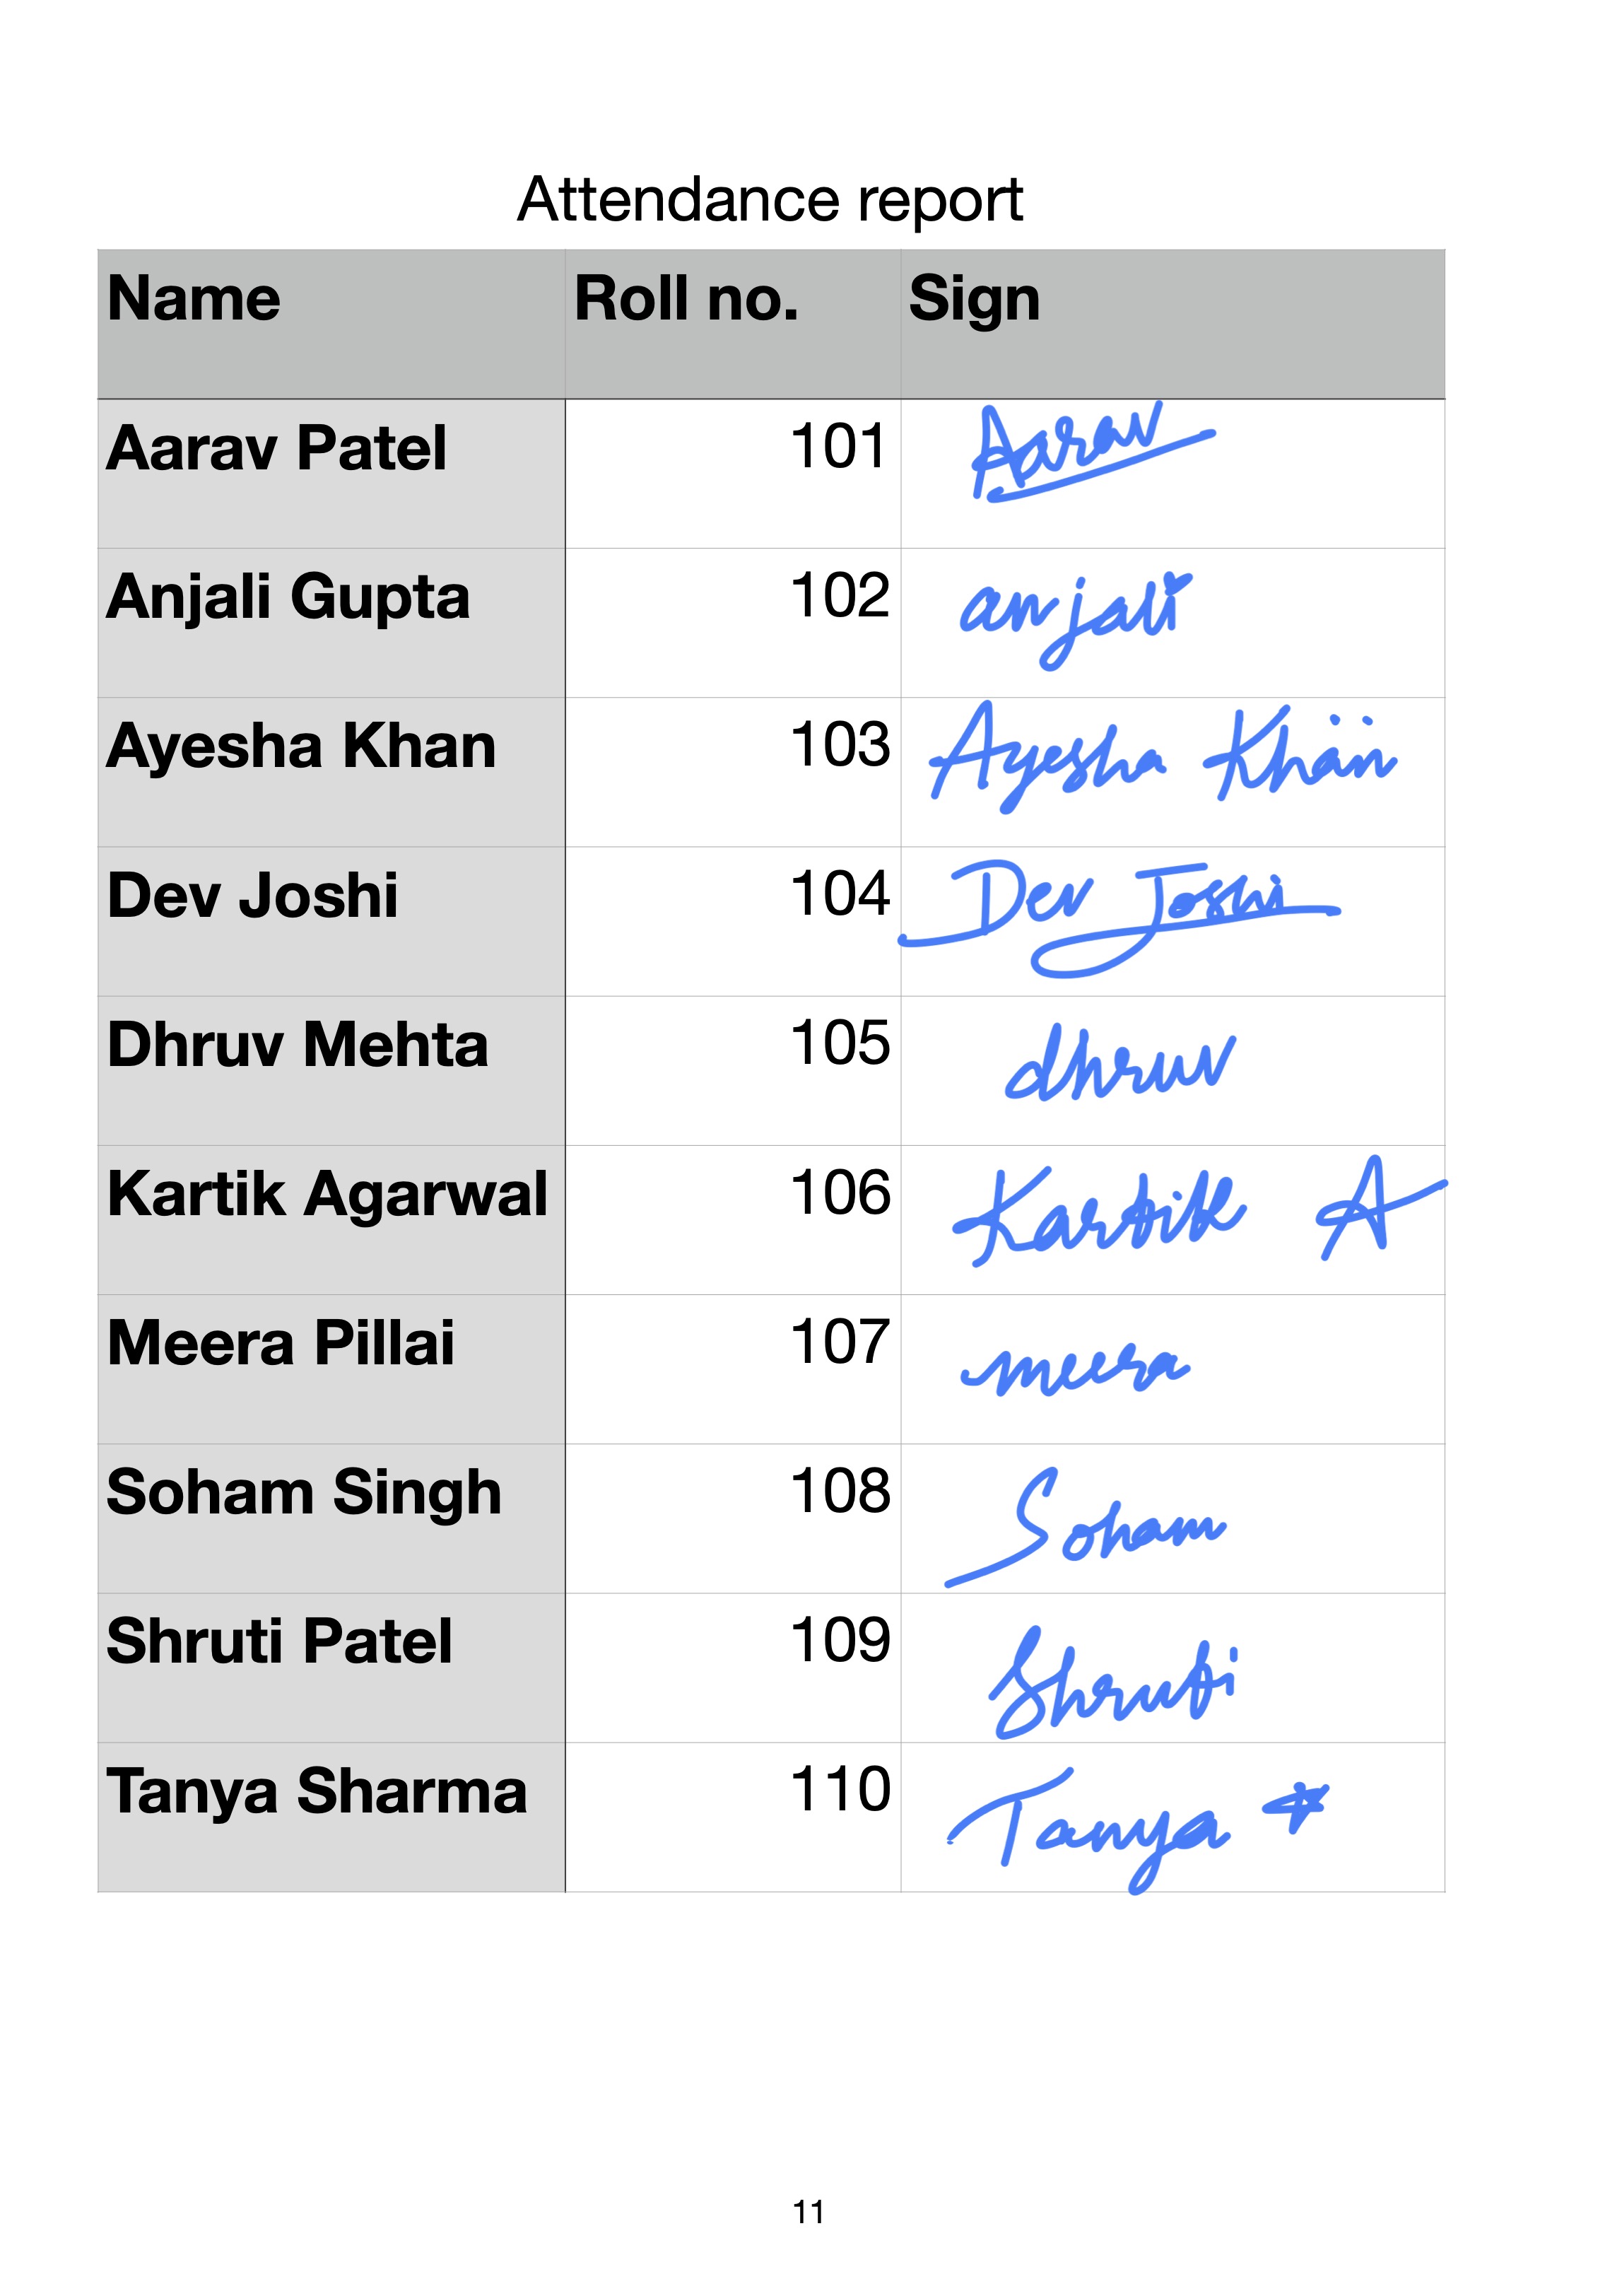 Attendance report
Name Roll no. Sign
Aarav Patel 101 Aarav
Anjali Gupta 102 anjali
Ayesha Khan 103 Ayesha Khan
Dev Joshi 104 Dev Joshi
Dhruv Mehta 105 dhruv
Kartik Agarwal 106 Kartik A
Meera Pillai 107 meera
Soham Singh 108 Soham
Shruti Patel 109 Shruti
Tanya Sharma 110 Tanya
11